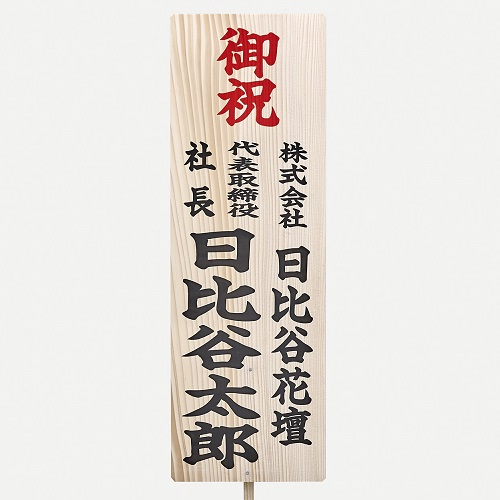 御祝
株式会社 日比谷花壇
代表取締役
社長
日比谷太郎